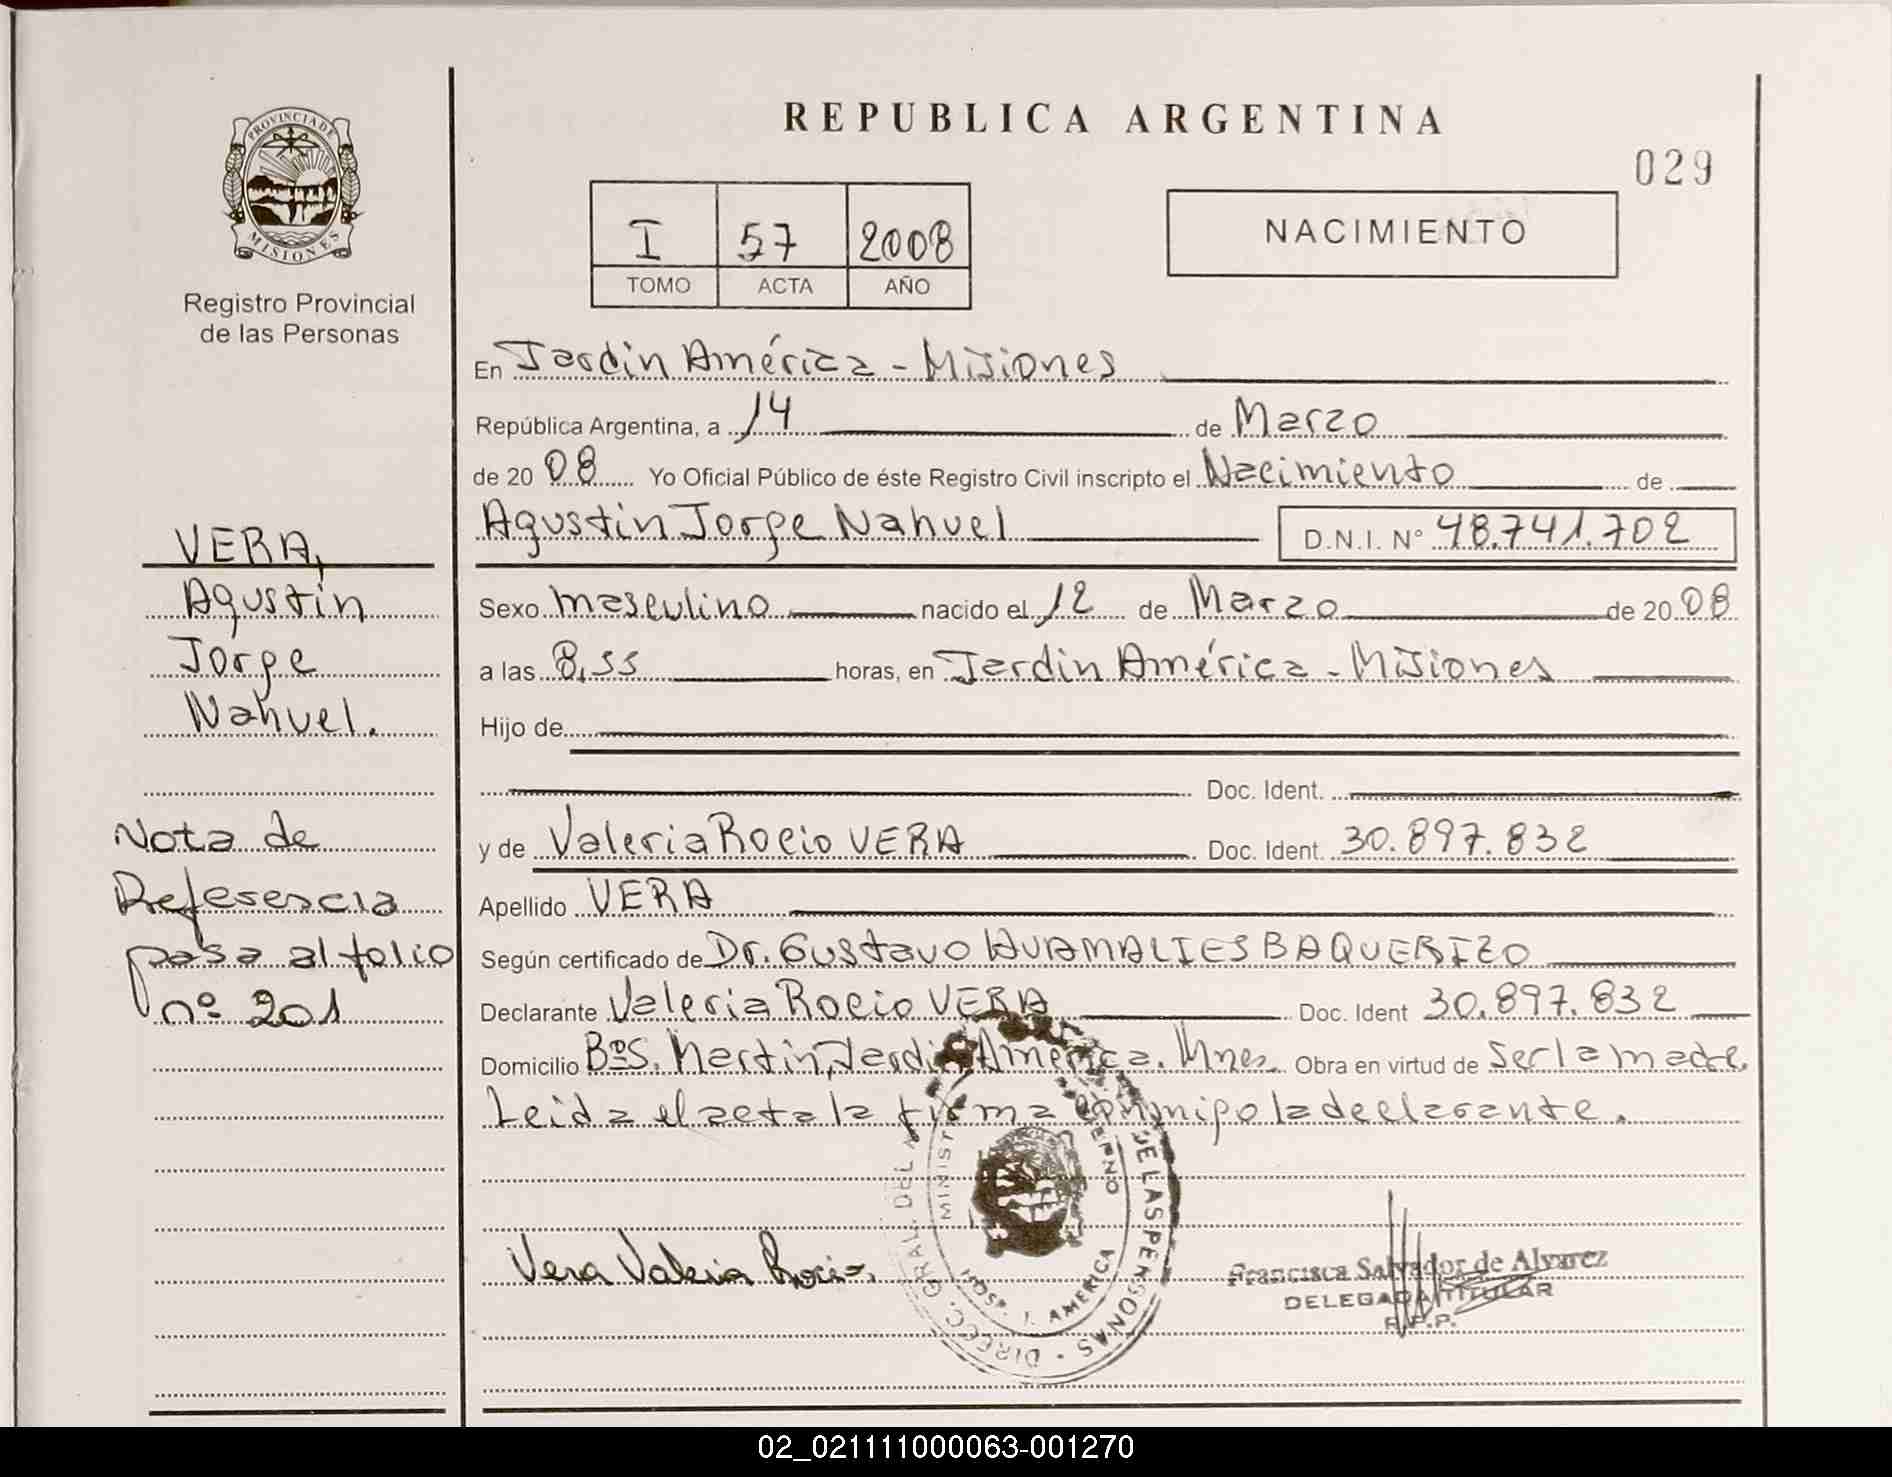 REPUBLICA ARGENTINA
029
PROVINCIA DE
MISIONES
Registro Provincial
de las Personas
I 57 2008
TOMO ACTA AÑO
NACIMIENTO
En Jardin América - Misiones
República Argentina, a 14 de Marzo
de 20 08 Yo Oficial Público de éste Registro Civil inscripto el Nacimiento de
Agustin Jorge Nahuel D.N.I. N° 48.741.702
Sexo masculino nacido el 12 de Marzo de 20 08
a las 8,55 horas, en Jardin América - Misiones
Hijo de
Doc. Ident.
y de Valeria Rocio VERA Doc. Ident. 30.897.832
Apellido VERA
Según certificado de Dr. Gustavo HUAMALIES BAQUERIZO
Declarante Valeria Rocio VERA Doc. Ident 30.897.832
Domicilio Bº S. Martin, Jardin América. Mnes. Obra en virtud de Ser la madre
Leida el acta la firma conmigo la declarante.
Vera Valeria Rocio
Francisca Salvador de Alvarez
DELEGADA TITULAR
R.P.P.
DIRECC. GRAL. DEL DE LAS PERSONAS
HOSP. J. AMERICA
VERA,
Agustin
Jorge
Nahuel.
Nota de
Referencia
pasa al folio
nº 201
02_021111000063-001270